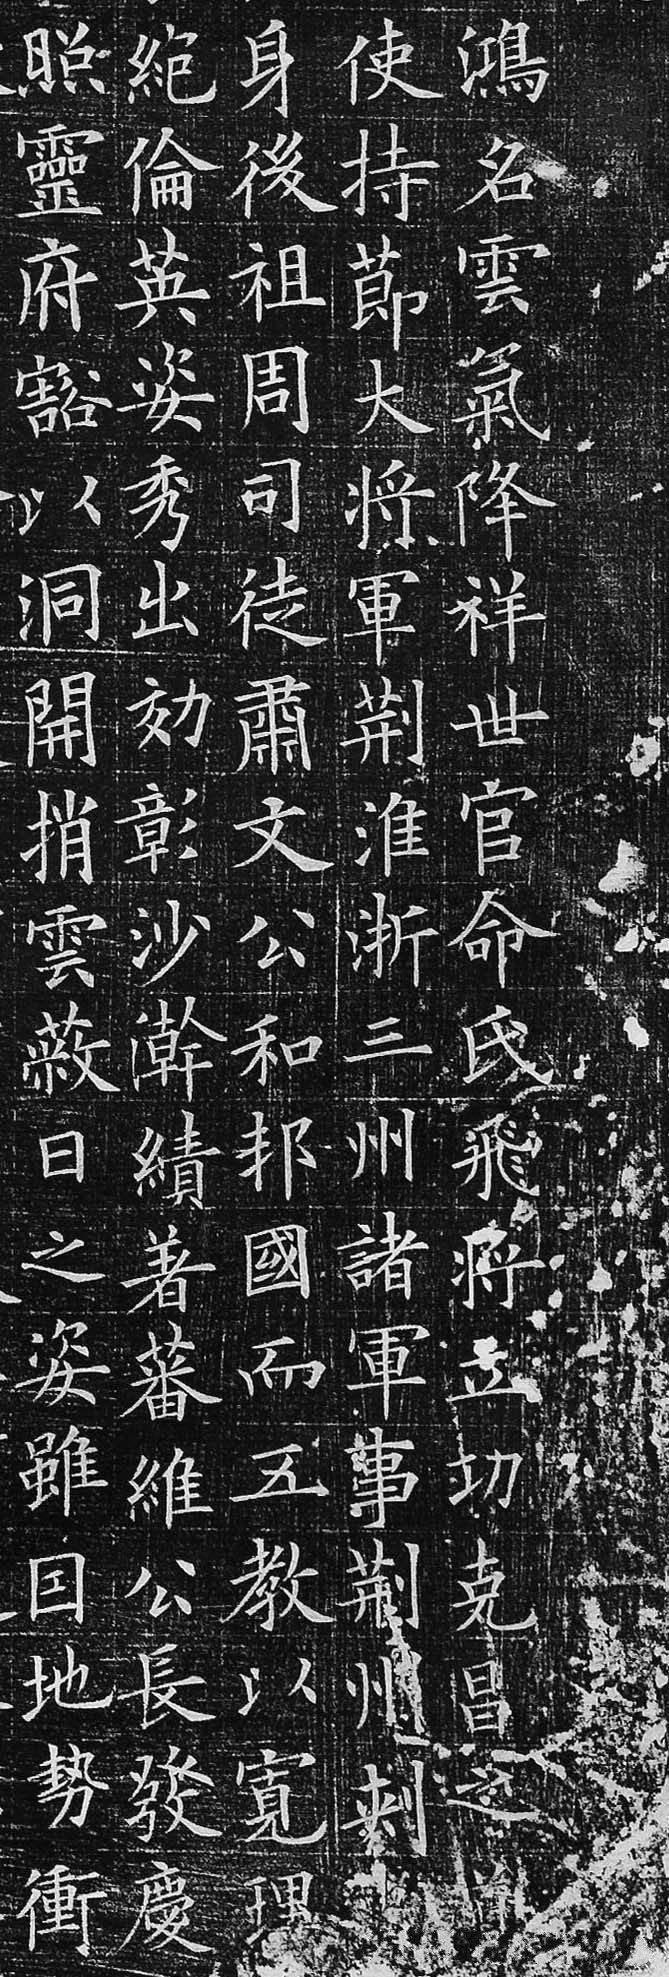 鴻名雲氣降祥世官命氏飛將立功克昌之
使持節大將軍荆淮浙三州諸軍事荆州刺
身後祖周司徒肅文公和邦國而五教以寬理
絶倫英姿秀出効彰沙澣績著蕃維公長發慶
照靈府豁以洞開捎雲蔽日之姿雖因地勢衝